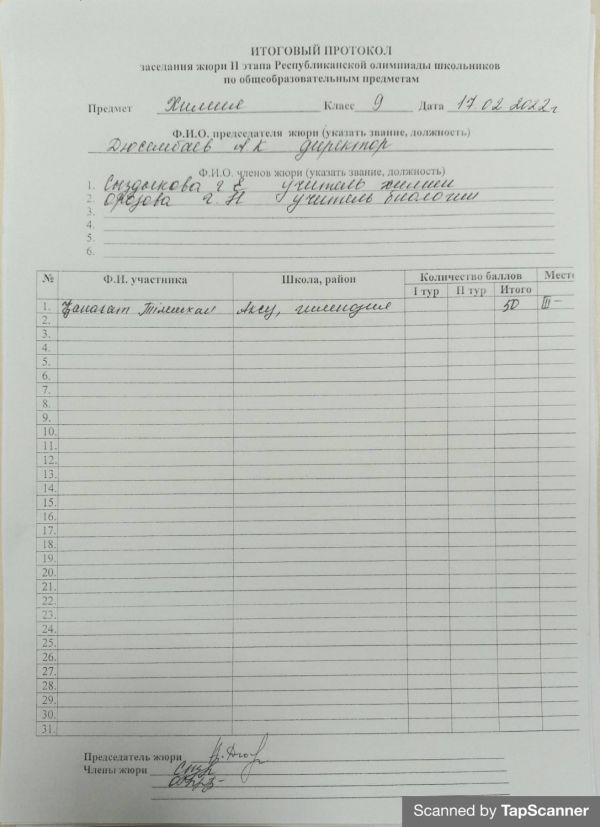 ИТОГОВЫЙ ПРОТОКОЛ
заседания жюри II этапа Республиканской олимпиады школьников
по общеобразовательным предметам
Предмет Химия Класс 9 Дата 17 02 2022г
Ф.И.О. председателя жюри (указать звание, должность)
Дюсембаев А К директор
Ф.И.О. членов жюри (указать звание, должность)
1. Сыздыкова Г Е учитель химии
2. Оразова Г. Н учитель биологии
3.
4.
5.
6.
№ Ф.И. участника Школа, район Количество баллов Место
I тур II тур Итого
1. Қанағат Аксу, гимназия 50 III
2.
3.
4.
5.
6.
7.
8.
9.
10.
11.
12.
13.
14.
15.
16.
17.
18.
19.
20.
21.
22.
23.
24.
25.
26.
27.
28.
29.
30.
31.
Председатель жюри
Члены жюри
Scanned by TapScanner